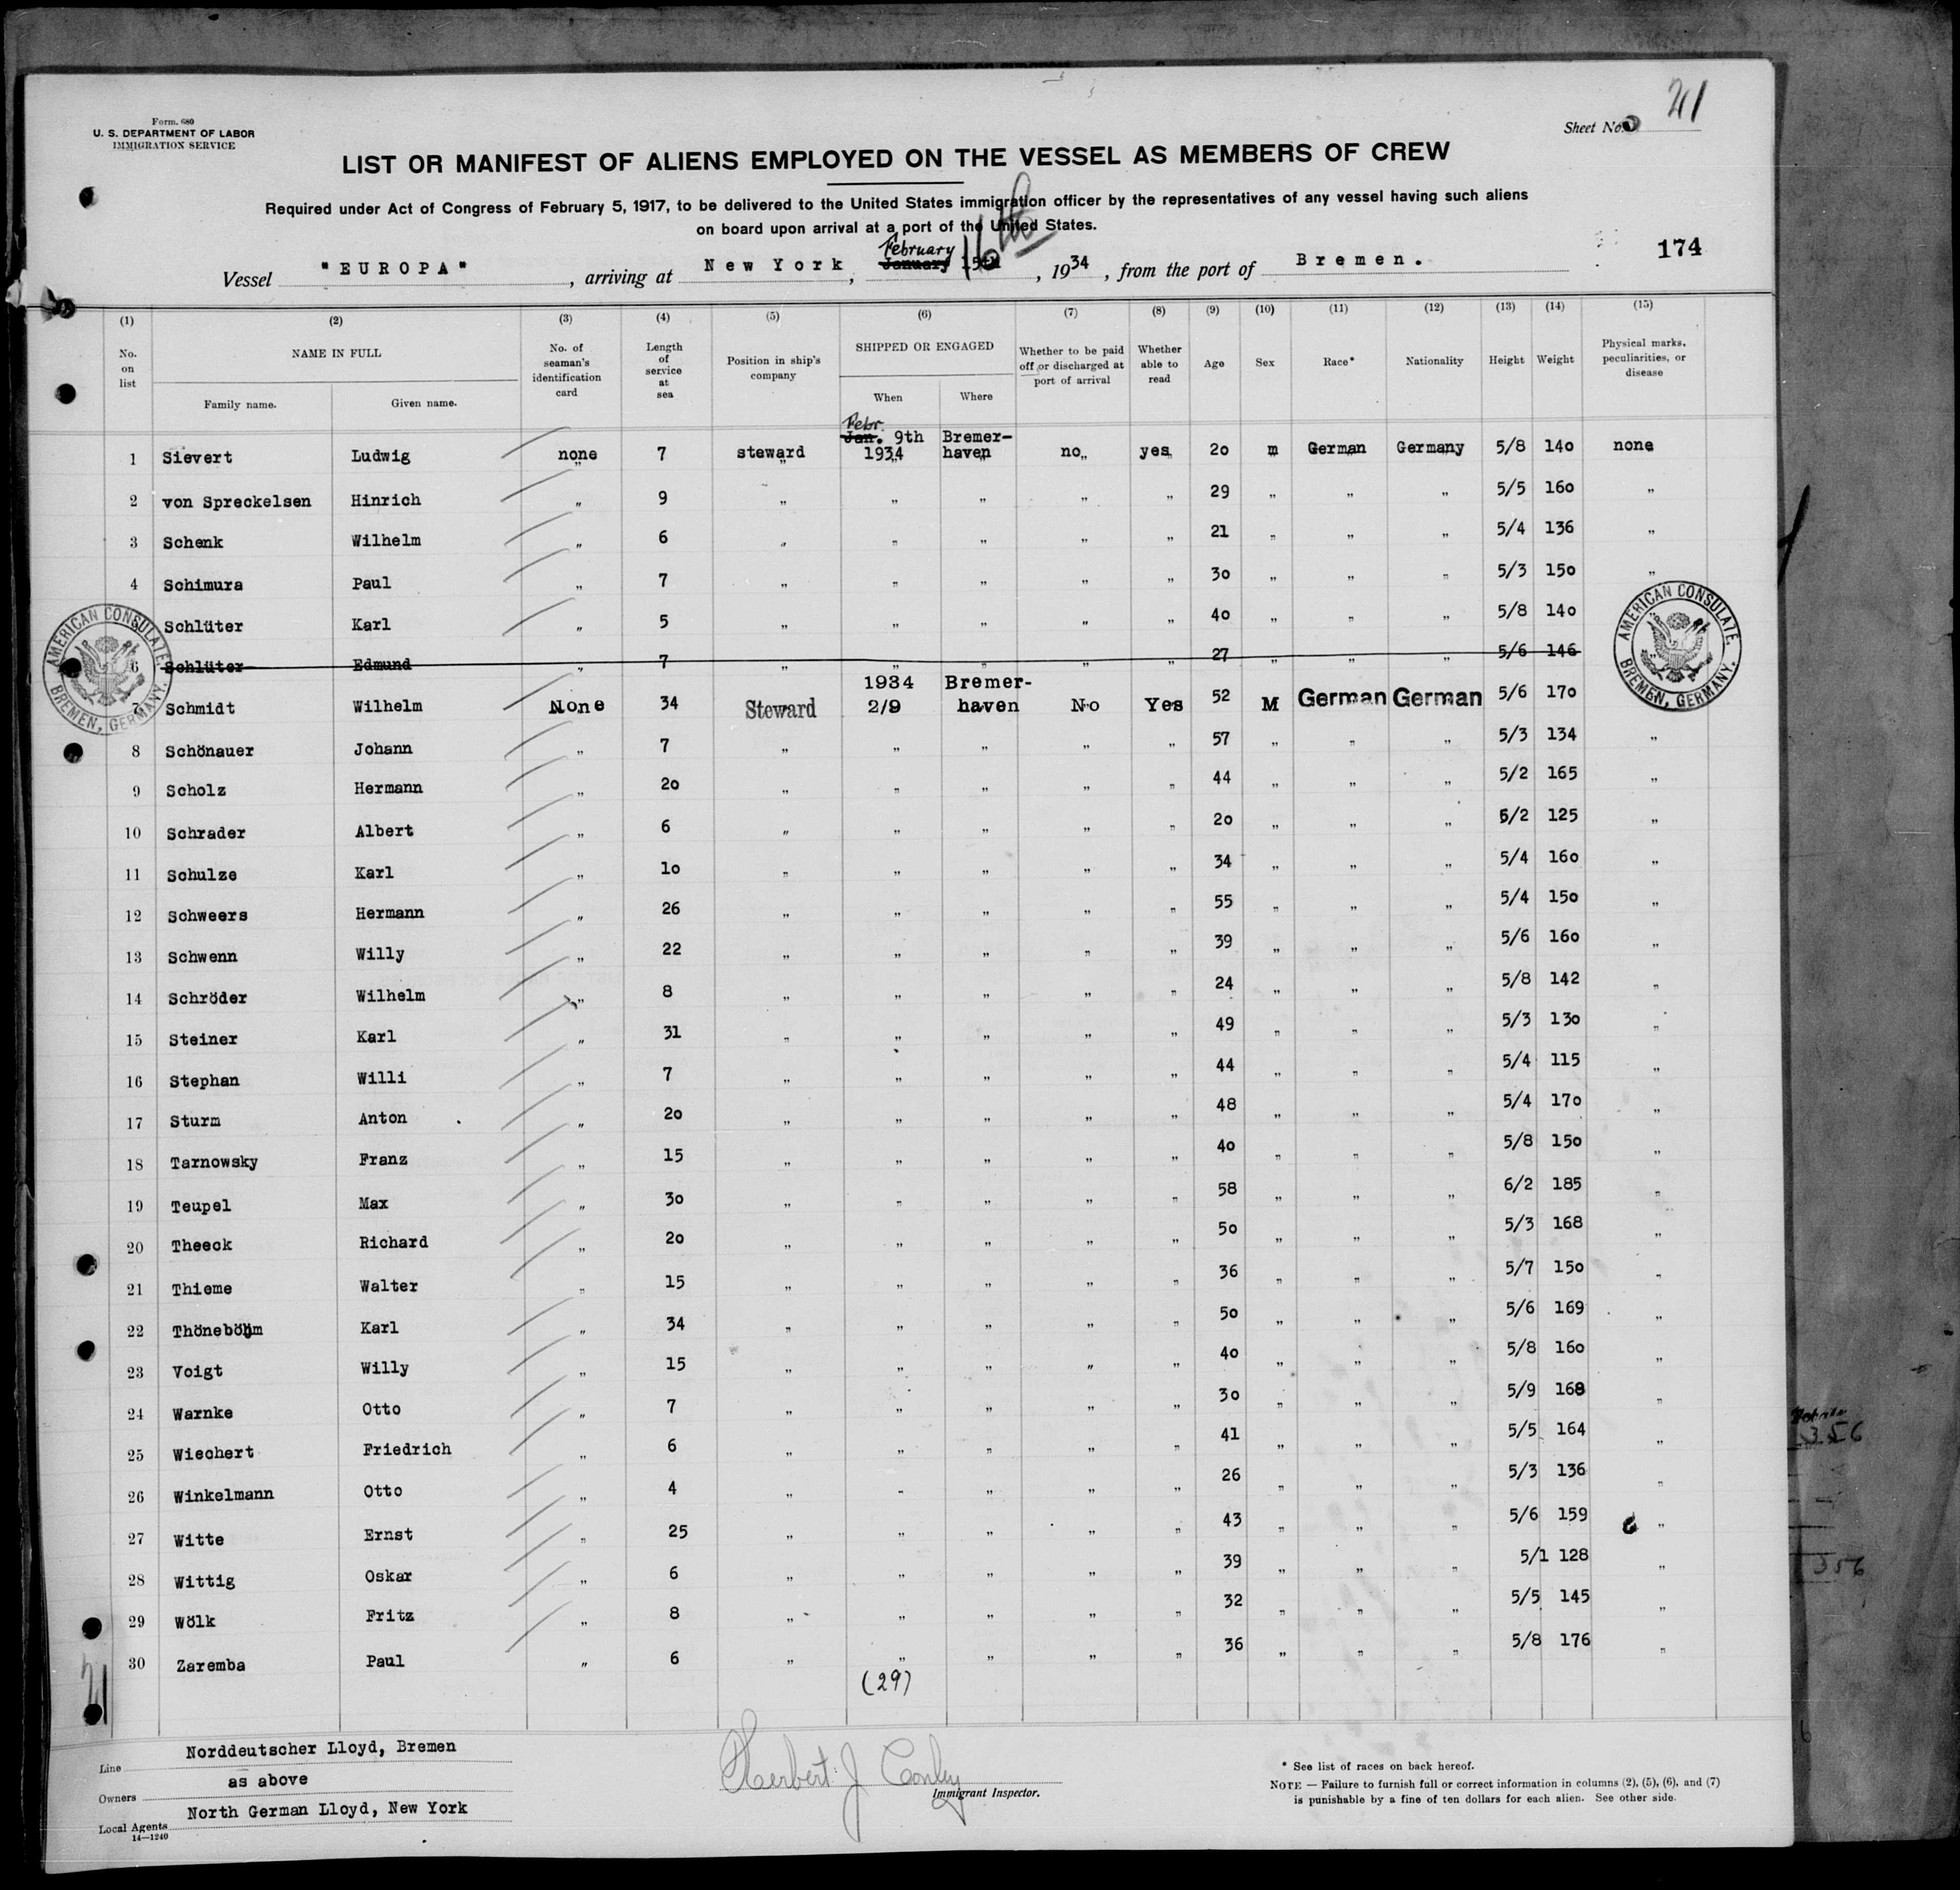 Form. 680
U. S. DEPARTMENT OF LABOR
IMMIGRATION SERVICE
Sheet No. 21
LIST OR MANIFEST OF ALIENS EMPLOYED ON THE VESSEL AS MEMBERS OF CREW
Required under Act of Congress of February 5, 1917, to be delivered to the United States immigration officer by the representatives of any vessel having such aliens
on board upon arrival at a port of the United States.
February 16th
Vessel "EUROPA", arriving at New York, January 15th, 1934, from the port of Bremen.
174
(1) (2) (3) (4) (5) (6) (7) (8) (9) (10) (11) (12) (13) (14) (15)
No. on list
NAME IN FULL
Family name. Given name.
No. of seaman's identification card
Length of service at sea
Position in ship's company
SHIPPED OR ENGAGED
When Where
Whether to be paid off or discharged at port of arrival
Whether able to read
Age
Sex
Race*
Nationality
Height
Weight
Physical marks, peculiarities, or disease
Febr.
1 Sievert Ludwig none 7 steward Jan. 9th 1934 Bremer-haven no yes 20 m German Germany 5/8 140 none
2 von Spreckelsen Hinrich „ 9 „ „ „ „ „ 29 „ „ „ 5/5 160 „
3 Schenk Wilhelm „ 6 „ „ „ „ „ 21 „ „ „ 5/4 136 „
4 Schimura Paul „ 7 „ „ „ „ „ 30 „ „ „ 5/3 150 „
5 Schlüter Karl „ 5 „ „ „ „ „ 40 „ „ „ 5/8 140
6 Schlüter Edmund „ 7 „ „ „ „ „ 27 „ „ „ 5/6 146
7 Schmidt Wilhelm None 34 Steward 1934 2/9 Bremer-haven No Yes 52 M German German 5/6 170
8 Schönauer Johann „ 7 „ „ „ „ „ 57 „ „ „ 5/3 134 „
9 Scholz Hermann „ 20 „ „ „ „ „ 44 „ „ „ 5/2 165 „
10 Schrader Albert „ 6 „ „ „ „ „ 20 „ „ „ 5/2 125 „
11 Schulze Karl „ 10 „ „ „ „ „ 34 „ „ „ 5/4 160 „
12 Schweers Hermann „ 26 „ „ „ „ „ 55 „ „ „ 5/4 150 „
13 Schwenn Willy „ 22 „ „ „ „ „ 39 „ „ „ 5/6 160 „
14 Schröder Wilhelm „ 8 „ „ „ „ „ 24 „ „ „ 5/8 142 „
15 Steiner Karl „ 31 „ „ „ „ „ 49 „ „ „ 5/3 130 „
16 Stephan Willi „ 7 „ „ „ „ „ 44 „ „ „ 5/4 115 „
17 Sturm Anton „ 20 „ „ „ „ „ 48 „ „ „ 5/4 170 „
18 Tarnowsky Franz „ 15 „ „ „ „ „ 40 „ „ „ 5/8 150 „
19 Teupel Max „ 30 „ „ „ „ „ 58 „ „ „ 6/2 185 „
20 Theeck Richard „ 20 „ „ „ „ „ 50 „ „ „ 5/3 168 „
21 Thieme Walter „ 15 „ „ „ „ „ 36 „ „ „ 5/7 150 „
22 Thöneböhm Karl „ 34 „ „ „ „ „ 50 „ „ „ 5/6 169 „
23 Voigt Willy „ 15 „ „ „ „ „ 40 „ „ „ 5/8 160 „
24 Warnke Otto „ 7 „ „ „ „ „ 30 „ „ „ 5/9 168 „
25 Wiechert Friedrich „ 6 „ „ „ „ „ 41 „ „ „ 5/5 164 „
26 Winkelmann Otto „ 4 „ „ „ „ „ 26 „ „ „ 5/3 136 „
27 Witte Ernst „ 25 „ „ „ „ „ 43 „ „ „ 5/6 159 „
28 Wittig Oskar „ 6 „ „ „ „ „ 39 „ „ „ 5/1 128 „
29 Wölk Fritz „ 8 „ „ „ „ „ 32 „ „ „ 5/5 145 „
30 Zaremba Paul „ 6 „ „ „ „ „ 36 „ „ „ 5/8 176 „
(29)
AMERICAN CONSULATE. BREMEN, GERMANY.
AMERICAN CONSULATE. BREMEN, GERMANY.
356
356
21
Line Norddeutscher Lloyd, Bremen
Owners as above
Local Agents North German Lloyd, New York
14—1240
Herbert J Conley
Immigrant Inspector.
* See list of races on back hereof.
NOTE — Failure to furnish full or correct information in columns (2), (5), (6), and (7)
is punishable by a fine of ten dollars for each alien. See other side.